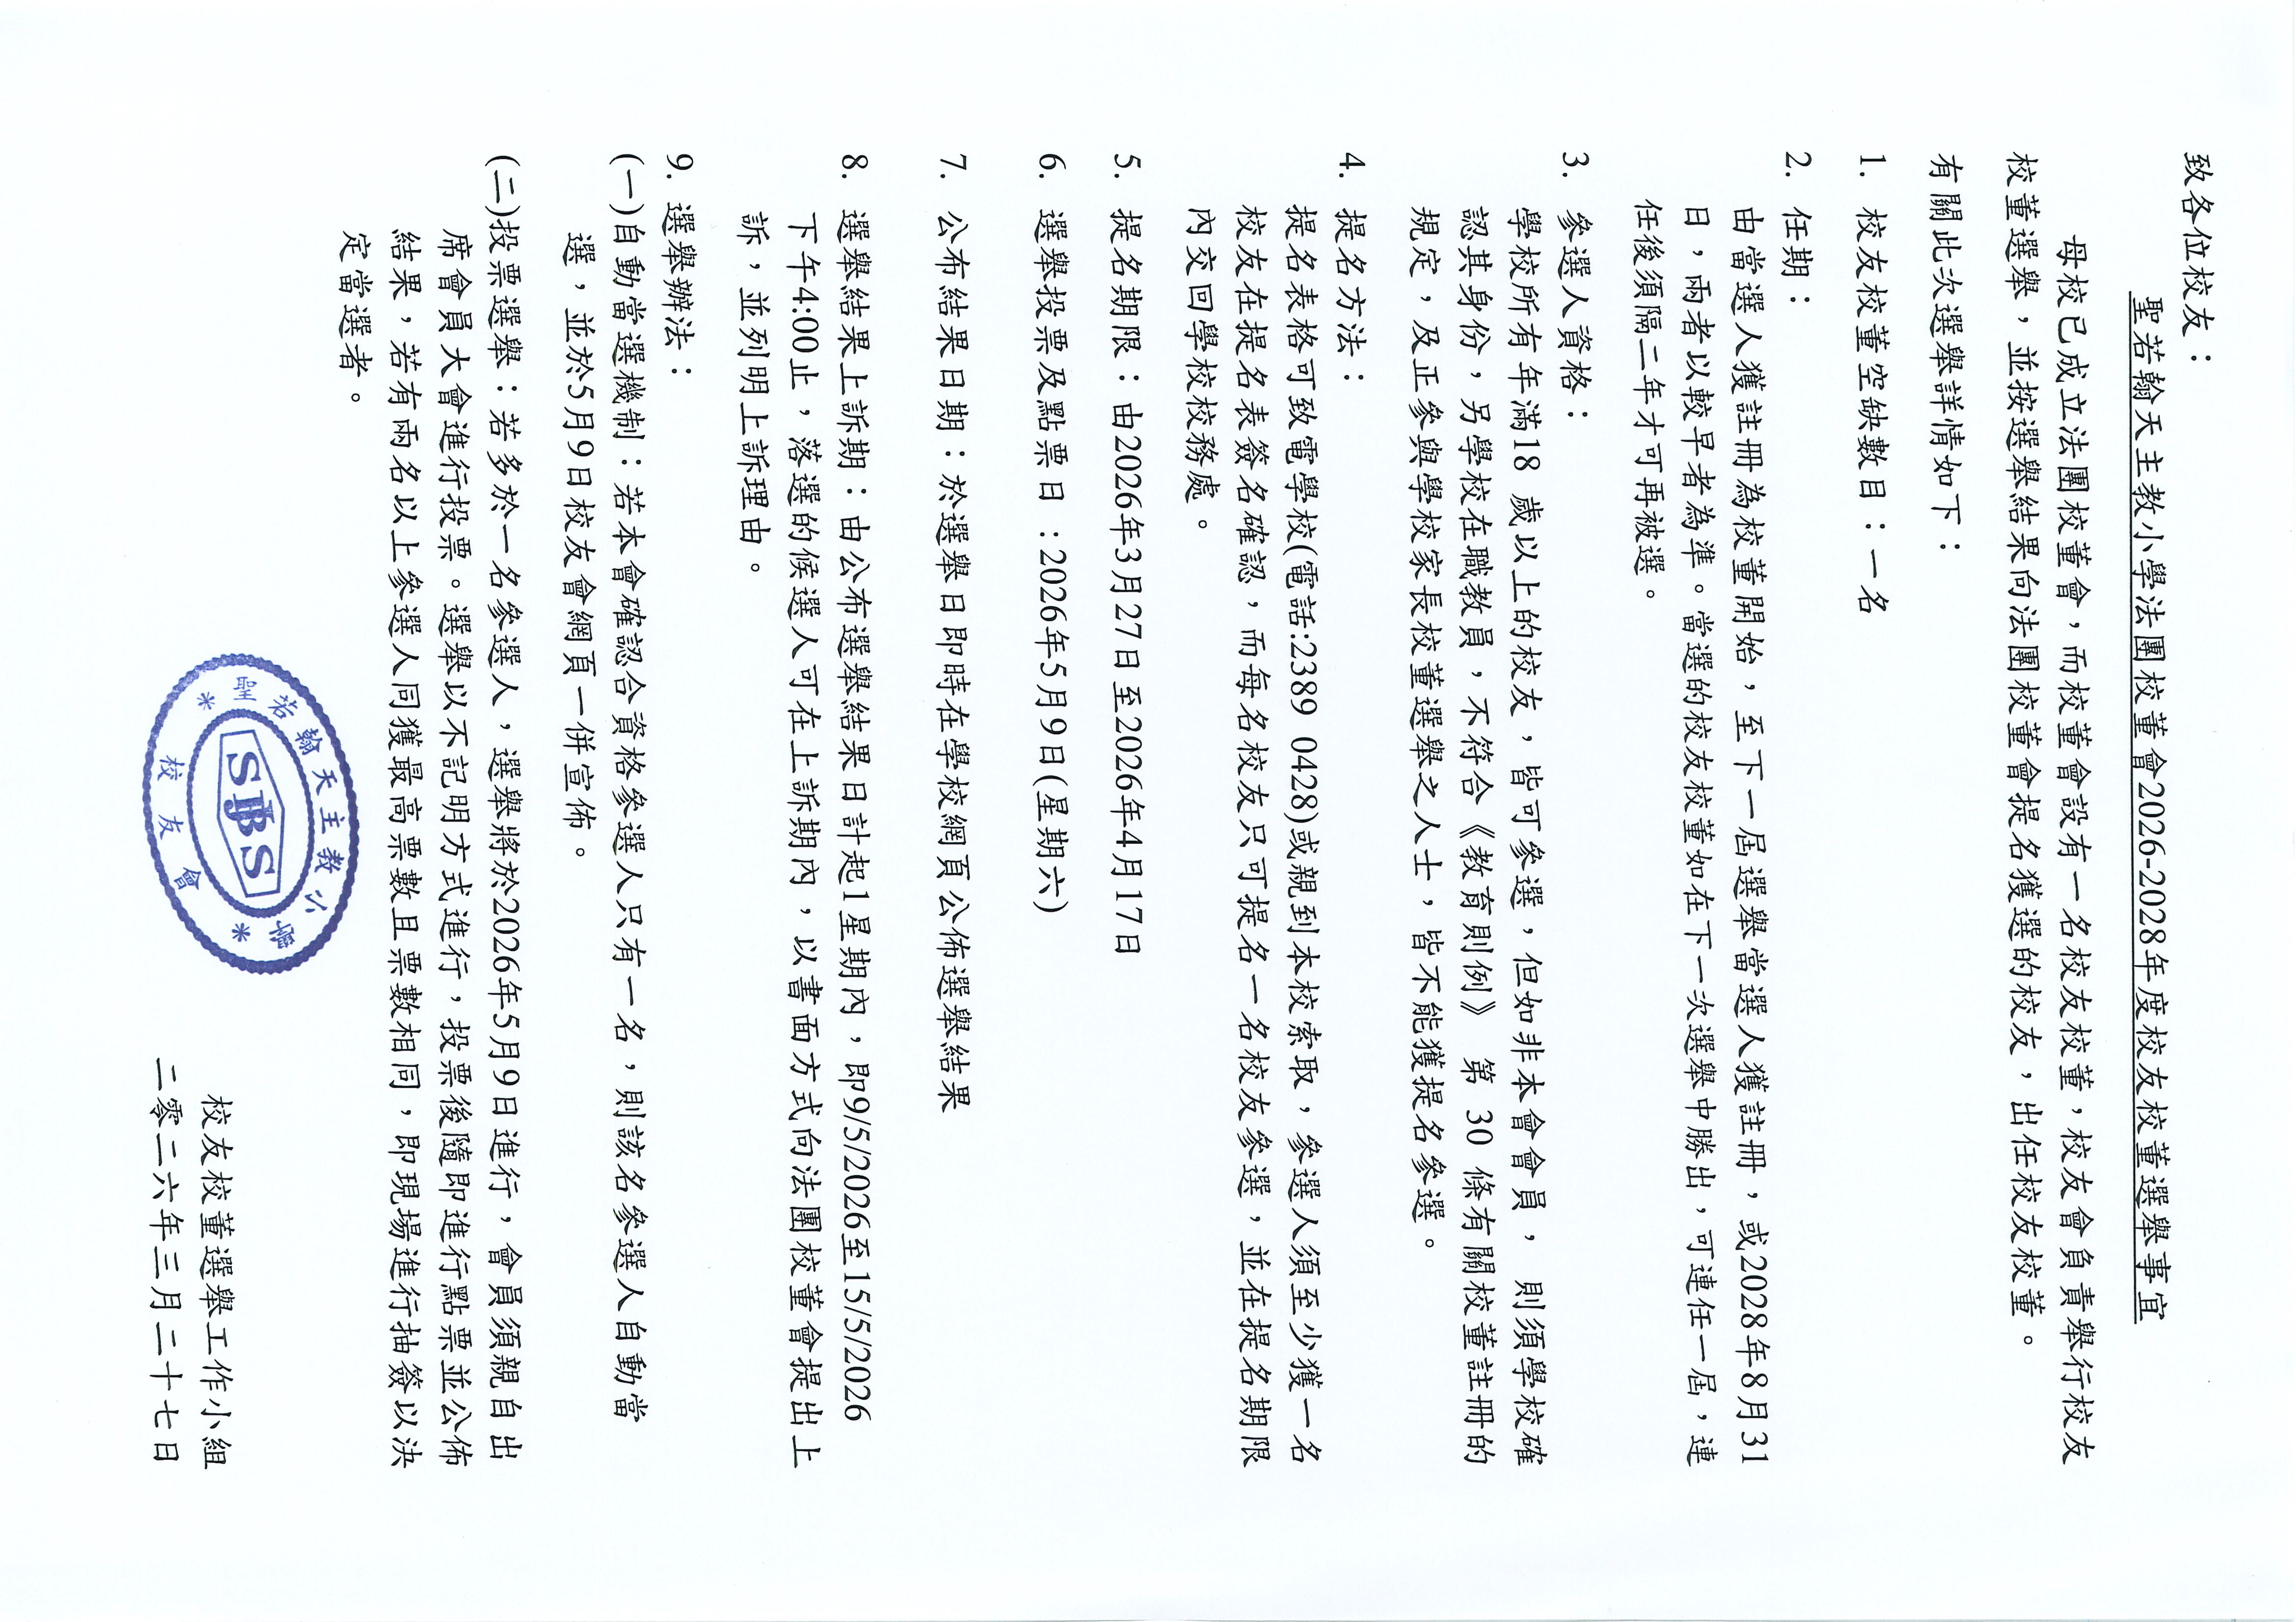 致各位校友：
聖若翰天主教小學法團校董會2026-2028年度校友校董選舉事宜
母校已成立法團校董會，而校董會設有一名校友校董，校友會負責舉行校友
校董選舉，並按選舉結果向法團校董會提名獲選的校友，出任校友校董。
有關此次選舉詳情如下：
1. 校友校董空缺數目：一名
2. 任期：
由當選人獲註冊為校董開始，至下一屆選舉當選人獲註冊，或2028年8月31
日，兩者以較早者為準。當選的校友校董如在下一次選舉中勝出，可連任一屆，連
任後須隔二年才可再被選。
3. 參選人資格：
學校所有年滿18 歲以上的校友，皆可參選，但如非本會會員， 則須學校確
認其身份，另學校在職教員，不符合《教育則例》 第 30 條有關校董註冊的
規定，及正參與學校家長校董選舉之人士，皆不能獲提名參選。
4. 提名方法：
提名表格可致電學校(電話:2389 0428)或親到本校索取，參選人須至少獲一名
校友在提名表簽名確認，而每名校友只可提名一名校友參選，並在提名期限
內交回學校校務處。
5. 提名期限：由2026年3月27日至2026年4月17日
6. 選舉投票及點票日 :2026年5月9日(星期六)
7. 公布結果日期：於選舉日即時在學校網頁公佈選舉結果
8. 選舉結果上訴期：由公布選舉結果日計起1星期內，即9/5/2026至15/5/2026
下午4:00止，落選的候選人可在上訴期內，以書面方式向法團校董會提出上
訴，並列明上訴理由。
9. 選舉辦法：
(一)自動當選機制：若本會確認合資格參選人只有一名，則該名參選人自動當
選，並於5月9日校友會網頁一併宣佈。
(二)投票選舉：若多於一名參選人，選舉將於2026年5月9日進行，會員須親自出
席會員大會進行投票。選舉以不記明方式進行，投票後隨即進行點票並公佈
結果，若有兩名以上參選人同獲最高票數且票數相同，即現場進行抽簽以決
定當選者。
聖若翰天主教小學
SJBS
校友會
校友校董選舉工作小組
二零二六年三月二十七日